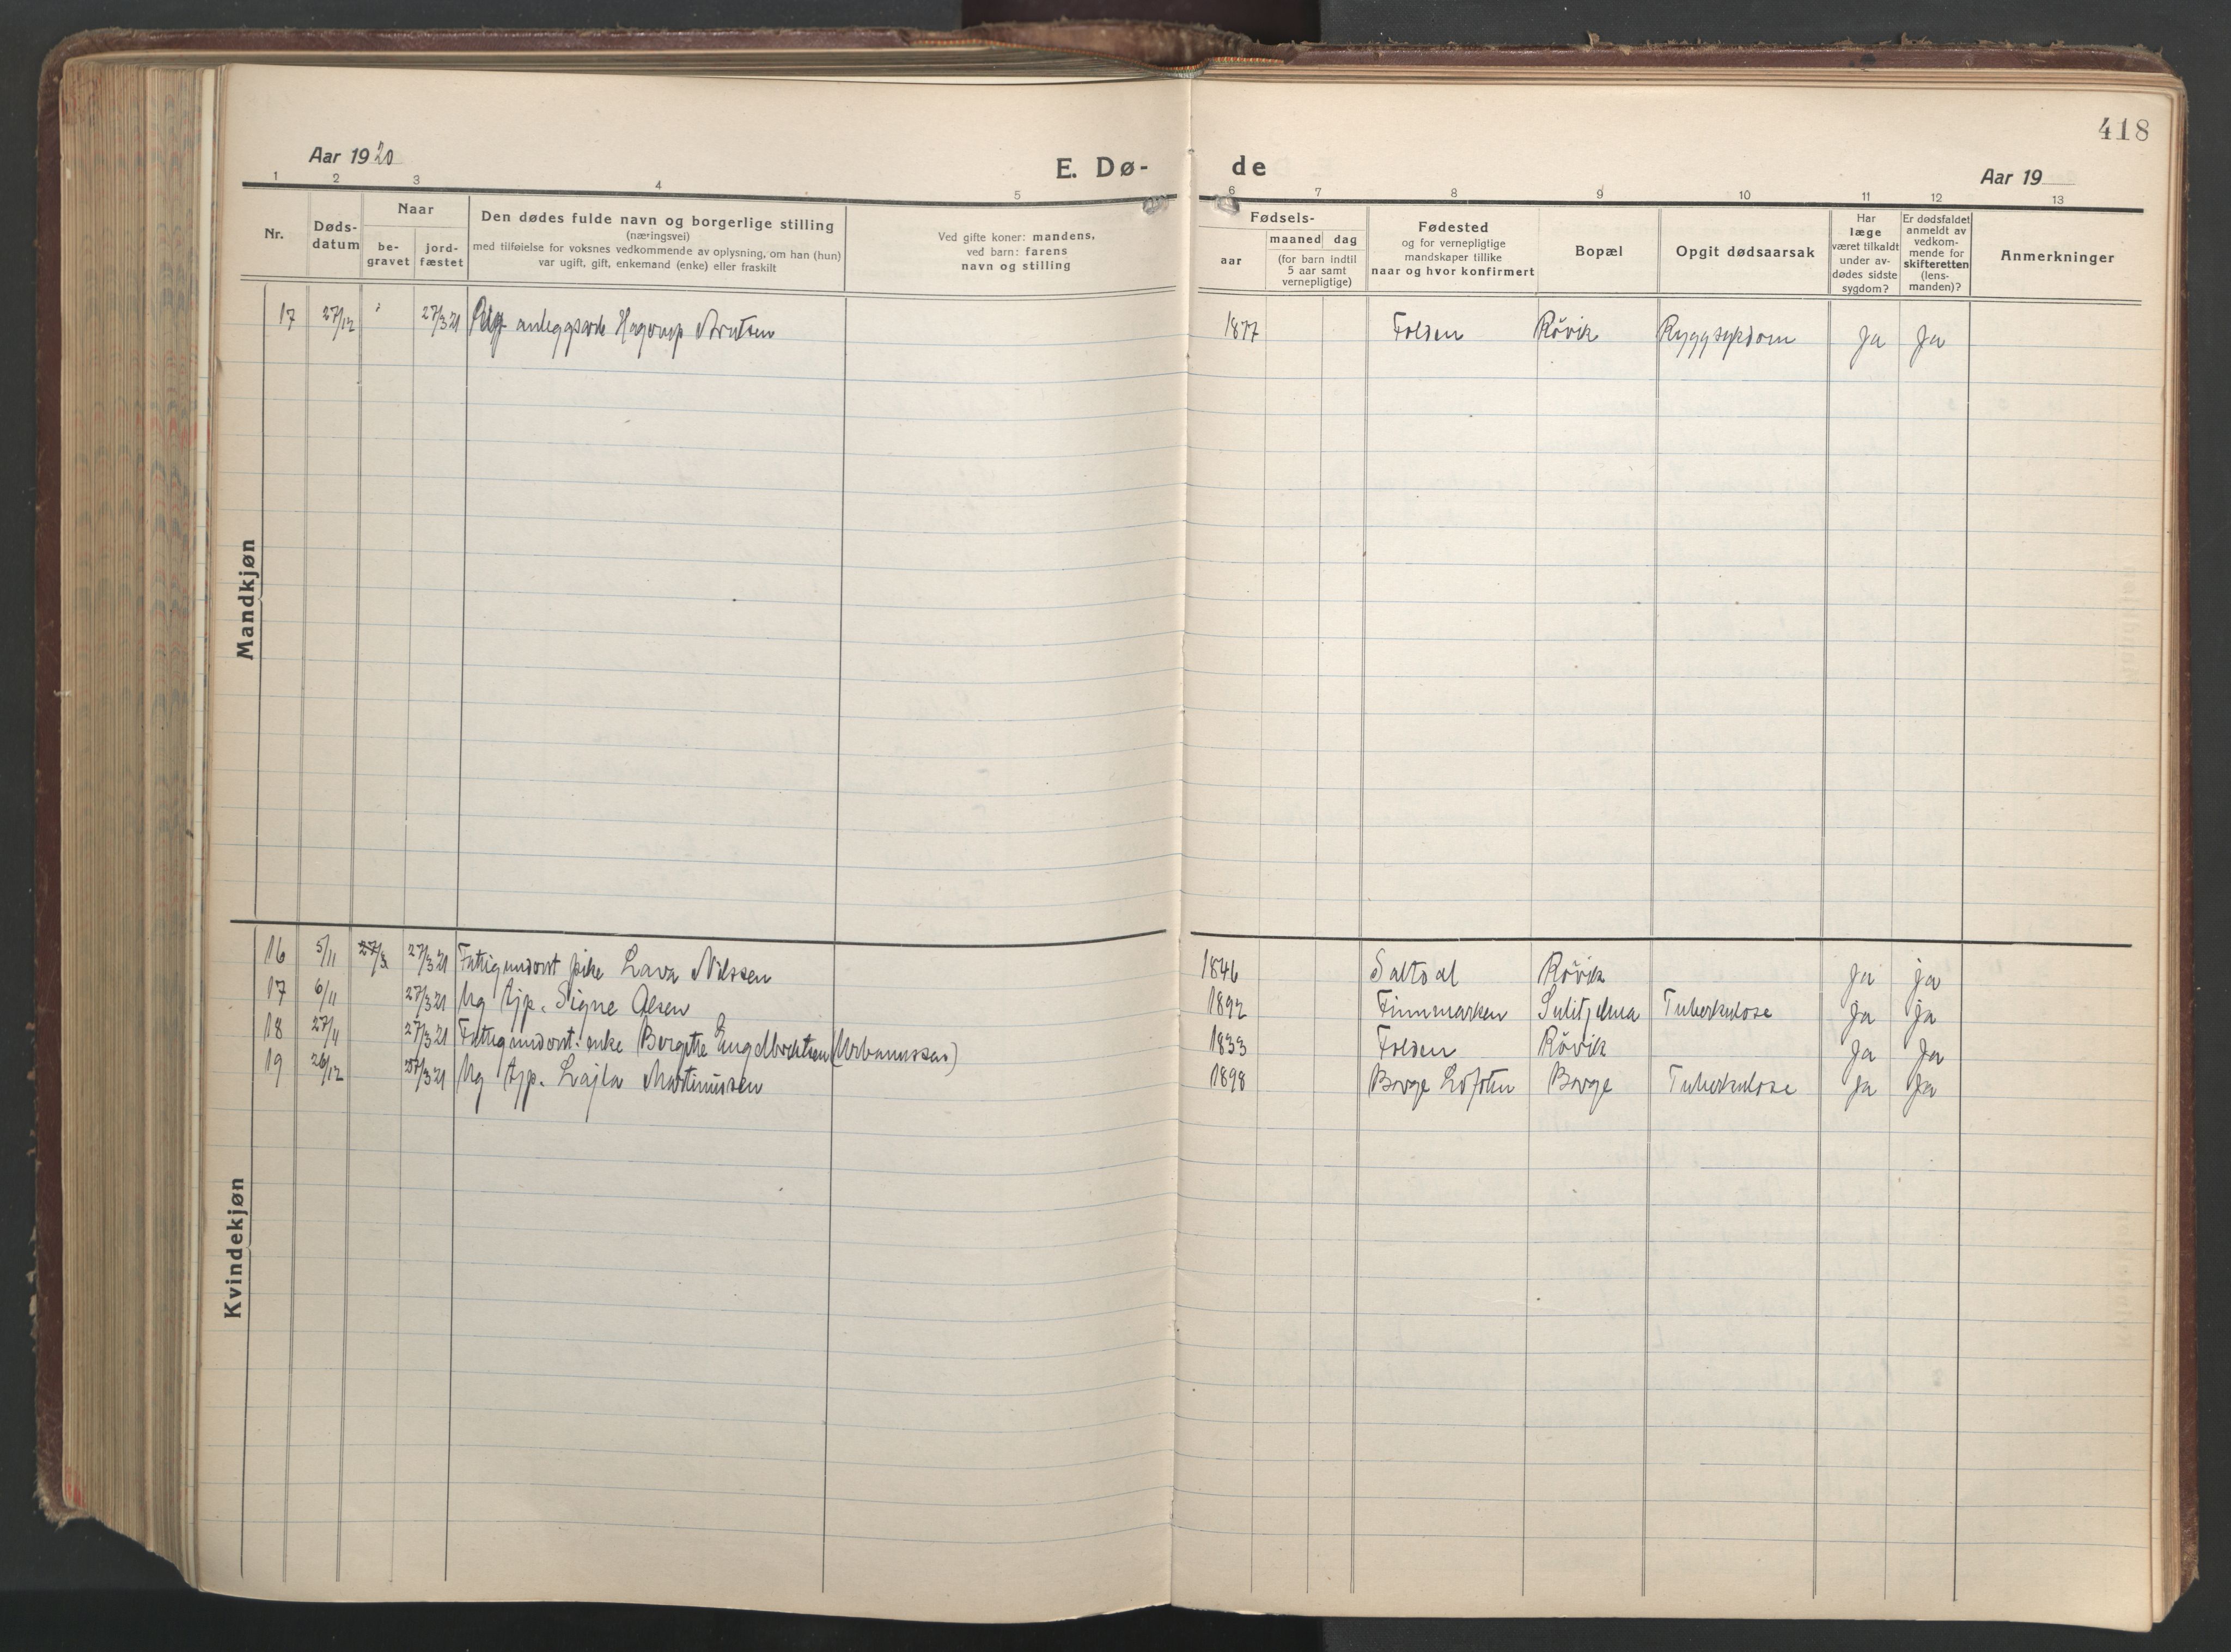 418
Aar 1920
E. Dø-
de
Aar 19
1 2 3 4 5 6 7 8 9 10 11 12 13
Nr.
Døds-
datum
Naar
be-
gravet
jord-
fæstet
Den dødes fulde navn og borgerlige stilling
(næringsvei)
med tilføielse for voksnes vedkommende av oplysning, om han (hun)
var ugift, gift, enkemand (enke) eller fraskilt
Ved gifte koner: mandens,
ved barn: farens
navn og stilling
Fødsels-
aar
maaned dag
(for barn indtil
5 aar samt
vernepligtige)
Fødested
og for vernepligtige
mandskaper tillike
naar og hvor konfirmert
Bopæl
Opgit dødsaarsak
Har
læge
været tilkaldt
under av-
dødes sidste
sygdom?
Er dødsfaldet
anmeldt av
vedkom-
mende for
skifteretten
(lens-
manden)?
Anmerkninger
Mandkjøn
17 27/12 27/3 21 anleggsarb Hagerup 1877 Folden Røvik Ryggsykdom Ja Ja
Kvindekjøn
16 5/11 27/3 27/3 21 Fattigunderst pike Lava Nilssen 1846 Saltdal Røvik Ja ja
17 6/11 27/3 21 Ug tjp. Signe Olsen 1892 Finnmarken Sulitjelma Tuberkulose Ja ja
18 27/11 27/3 21 Fattigunderst. enke Bergitte Engelbrektsen (Urbanussen) 1833 Folden Røvik Ja Ja
19 26/12 27/3 21 Ug tjp. Lajla Martinussen 1898 Borge Lofoten Borge Tuberkulose Ja Ja